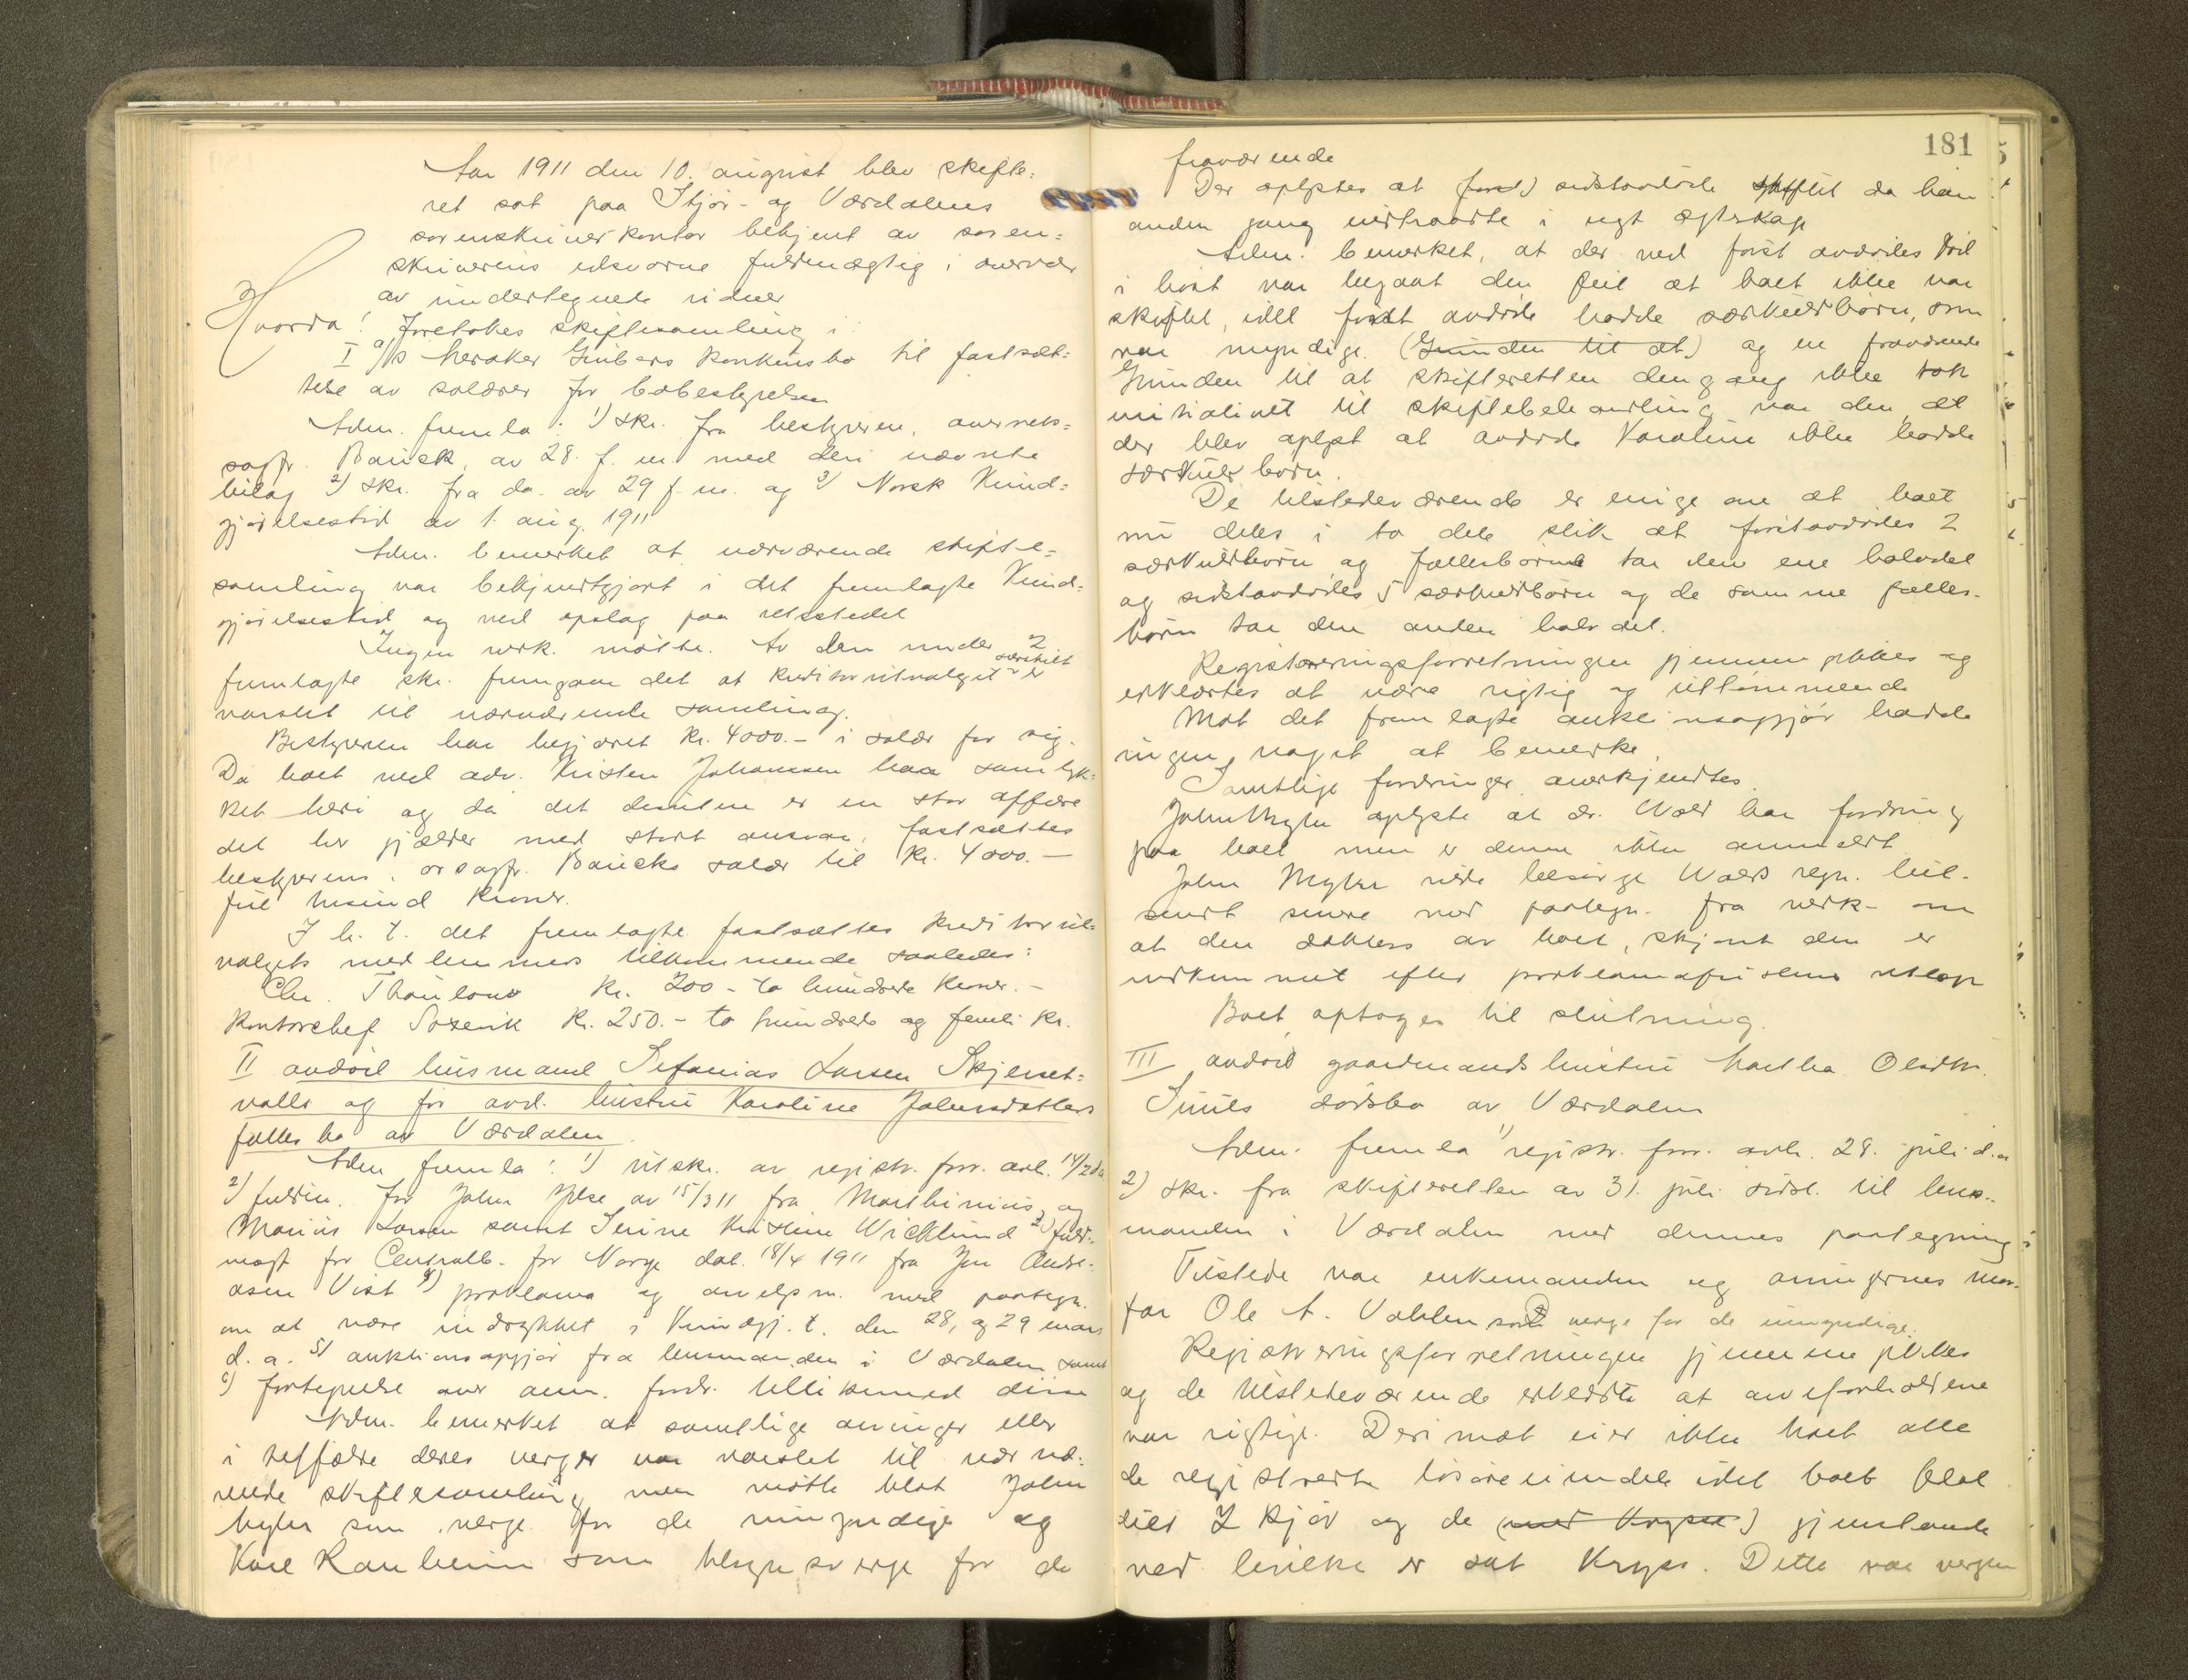 Aar 1911 den 10. august blev skifte=
ret sat paa Stjør- og Værdalens
sorenskriverkontor betjent av soren=
skriverens edsvorne fuldmægtig i overvær
av undertegnede vidner
Hvorda! Foretokes skiftesamling i
I a/s Meraker Grubers konkursbo til fastsæt=
telse av salærer for bobestyrelsen
Adm. fremla: 1) skr. fra bestyreren, overrets=
sagfr. Bauck, av 28. f. m. med deri nævnte
bilag 2) skr. fra do. av 29 f. m. og 3) Norsk Kund=
gjørelsestid av 1. aug. 1911
Adm. bemerket at nærværende skifte=
samling var bekjendtgjort i det fremlagte Kund=
gjørelsestid og ved opslag paa retsstedet
Ingen vedk. møtte. Av den under 2
fremlagte skr. fremgaar det at kreditorutvalget er særskilt
varslet til nærværende samling.
Bestyreren har begjæret kr. 4000.- i salær for sig.
Da boet ved adv. Kristen Johanssen har samtyk=
ket heri og da det desuten er en stor affære
det her gjælder med stort ansvar, fastsættes
bestyrerens, orsagfr. Baucks salær til kr. 4000.-
fire tusind kroner.
I h. t. det fremlagte fastsættes kreditorut=
valgets medlemmers tilkommende saaledes:
Chr. Thaulow kr. 200 - to hundrede kroner. -
Kontorchef kr. 250.- to hundrede og femti kr.
II avdød husmand Sefanias Larsen Skjerset=
valds og før avd. hustru Karoline Johnsdatters
fællesbo av Værdalen
Adm. fremla: 1) utskr. av registr. forr. avh. 14/2 da
2) fuldm. for John Ydse av 15/3 11 fra Marthinius og
Marius Larsen samt Serine Kristine Wicklund 3) fuld=
magt for Centralb. for Norge dat. 18/4 1911 fra Jon Andre=
asen Vist 4) proklama og med paategn.
om at være indrykket i Kundgj. t. den 28, og 29 mars
d. a. 5) auktionsopgjør fra lensmanden i Værdalen samt
6) fortegnelse over anm. fordr. tillikemed disse
Adm. bemerket at samtlige arvinger eller
i tilfælde deres verger var varslet til nærvæ=
rende skiftesamling men møtte blot John
Myhr som verge for de umyndige og
Karl Ranheim som verge for de
181
fraværende
Der oplystes at (først) sidstavdøde skiftet da han
anden gang indtraadte i nyt ægteskap
Adm. bemerket, at der ved først avdødes død
i høst var begaat den feil at boet ikke var
skiftet, idet først avdøde hadde særkuldbørn, som
var myndige. (Grunden til at) og en fraværende
Grunden til at skifteretten dengang ikke tok
initiativet til skiftebehandling var den at
der blev oplyst at avdøde Karoline ikke hadde
særkuldbørn.
De tilstedeværende er enige om at boet
nu deles i to dele slik at førstavdødes 2
særkuldbørn og fællesbørnene tar den ene halvdel
og sidstavdødes 5 særkuldbørn og de samme fælles-
børn tar den anden halvdel.
Registreringsforretningen gjennemgikkes og
erklærtes at være rigtig og uttømmende
Mot det fremlagte auktionsopgjør hadde
ingen noget at bemerke.
Samtlige fordringer anerkjendtes.
John Myhr oplyste at dr. Wold har fordring
paa boet men er denne ikke anmeldt
John Myhr vilde besørge Wolds regn. til-
sendt senere med paategn. fra vedk- om
at den dækkes av boet, skjønt den er
indkommet efter proklamafristens utløp
Boet optoges til slutning.
III avdød gaardmandshustru Martha Olsdtr.
dødsbo av Værdalen
Adm. fremla 1) registr. forr. avh. 29. juli d.a
2) skr. fra skifteretten av 31. juli sidstl. til lens=
manden i Værdalen med dennes paategning
Tilstede var enkemanden og arvingernes mor-
far Ole A. som verge for de umyndige.
Registreringsforretningen gjennemgikkes
og de tilstedeværende erklærte at arveforholdene
var rigtige. Derimot eier ikke boet alle
de registrerte løsøreiendele idet boet blot
eier 2 kjør og de (med kryss) gjenstande
ved hvilke er sat kryss. Dette var vergen